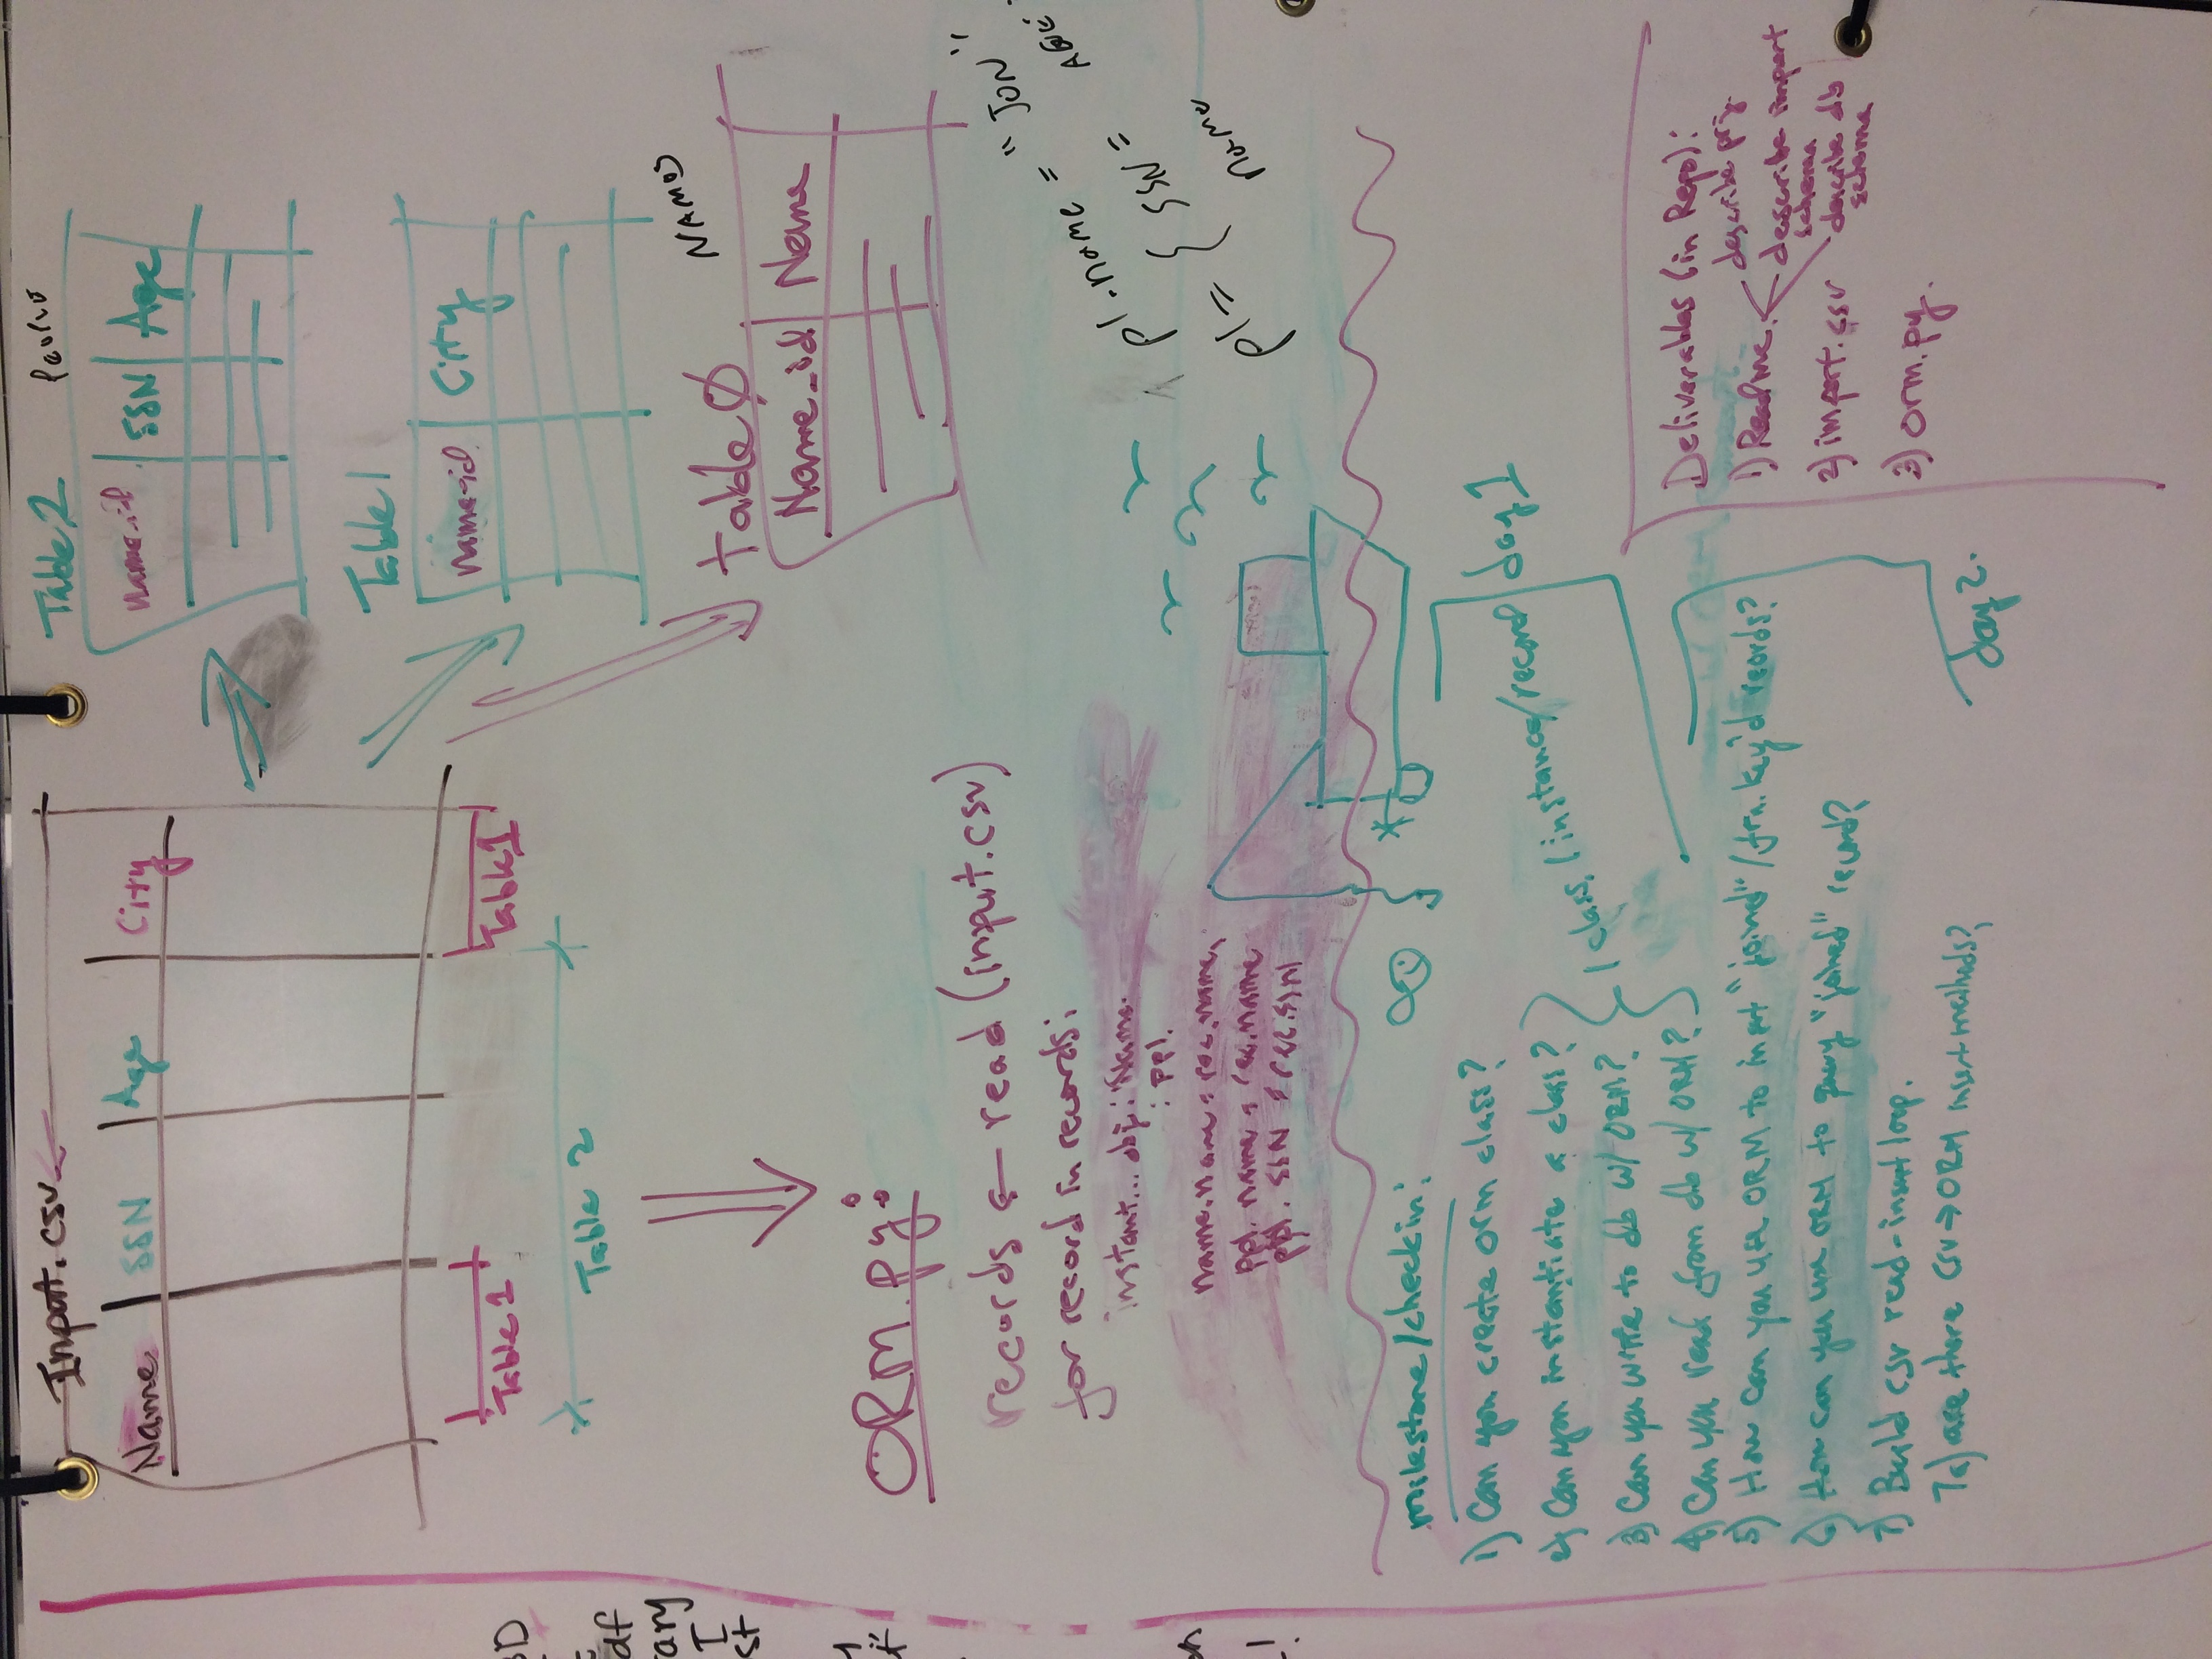 Input.csv
Name SSN Age City
Table 1 Table 1
Table 2
Table 2
name_id SSN Age
Table 1
name-id City
Table Ø NAMES
Name_id Name
ORM.py:
records ← read (input.csv)
for record in records:
instant... obj: Name.
: ppl.
name.name = rec.name,
ppl. name = rec.name
ppl. SSN = rec.ssn
p1.name = "JON"
p1 = { SSN = AGE
name
milestone/checkin:
1) Can you create orm class?
2) Can you instantiate a class?
3) Can you write to db w/ ORM?
4) Can you read from db w/ ORM?
1 class, 1 instance/record
day 1
5) How can you use ORM to insert "joined"/frn. key'd records?
6) How can you use ORM to query "joined" record?
7) Build csv read-insert loop.
7a) are there csv → ORM insert methods?
day 2.
Deliverables (in Repo):
1) Readme.
describe prj.
describe import
schema
describe db
schema
2) import.csv
3) orm.py.
BD
df
ary
I
st